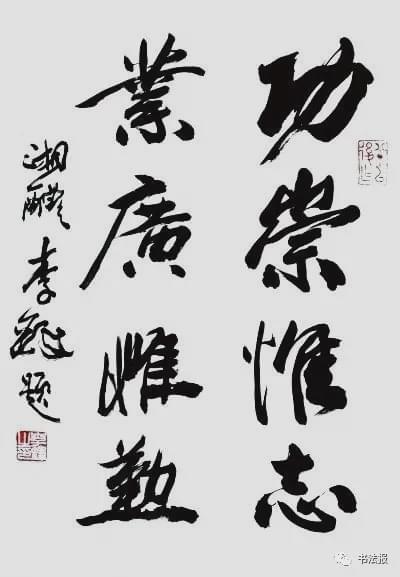 功崇惟志
業廣惟勤
湘醴李鐸題
书法报